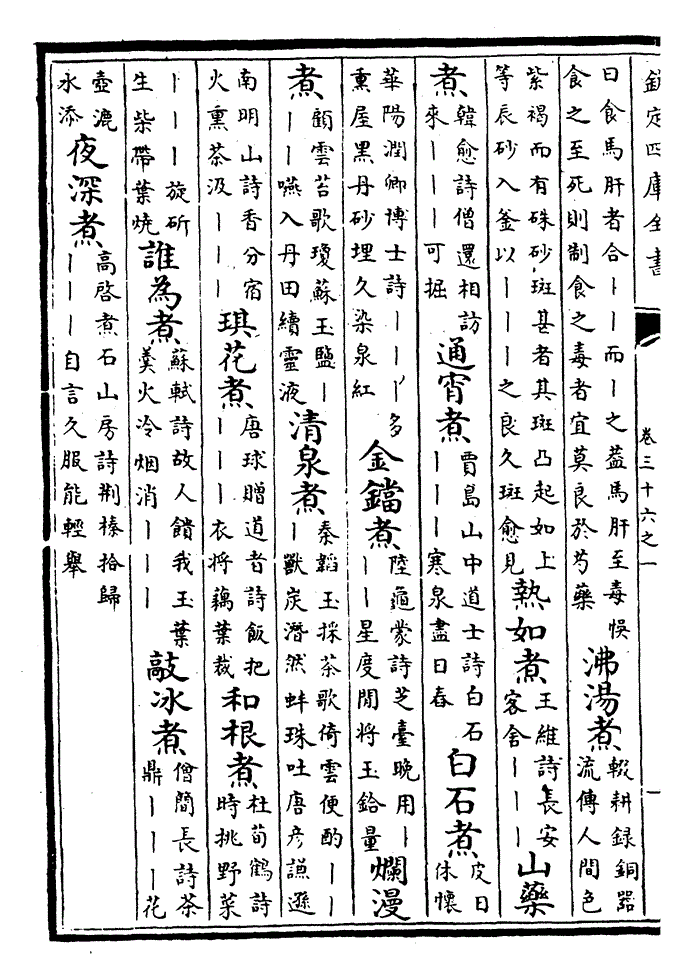 欽定四庫全書 卷三十六之一 一
曰食馬肝者合丨丨而丨之蓋馬肝至毒悞食之至死則制食之毒者宜莫良於芍藥沸湯煮輟耕録銅器流傳人間色
紫褐而有硃砂斑甚者其斑凸起如上等辰砂入釜以丨丨丨之良久斑愈見熱如煮王維詩長安客舍丨丨丨山藥
煮韓愈詩僧還相訪來丨丨丨可掘通宵煮賈島山中道士詩白石丨丨丨寒泉盡日舂白石煮皮日休懷
華陽潤卿博士詩丨丨丨多熏屋黒丹砂埋久染泉紅金鐺煮陸龜蒙詩芝臺晚用丨丨丨星度閒將玉鉿量爛漫
煮顧雲苔歌瓊蘇玉鹽丨丨丨嚥入丹田續靈液清泉煮秦韜玉採茶歌倚雲便酌丨丨丨獸炭潛然蚌珠吐唐彦謙遜
南明山詩香分宿火熏茶汲丨丨丨琪花煮唐球贈道者詩飯把丨丨丨衣將藕葉裁和根煮杜荀鶴詩時挑野菜
丨丨丨旋斫生柴帶葉燒誰為煮蘇軾詩故人饋我玉葉羮火冷烟消丨丨丨敲冰煮僧簡長詩茶鼎丨丨丨花
壺漉永添夜深煮高啓煮石山房詩荆榛拾歸丨丨丨自言久服能輕舉